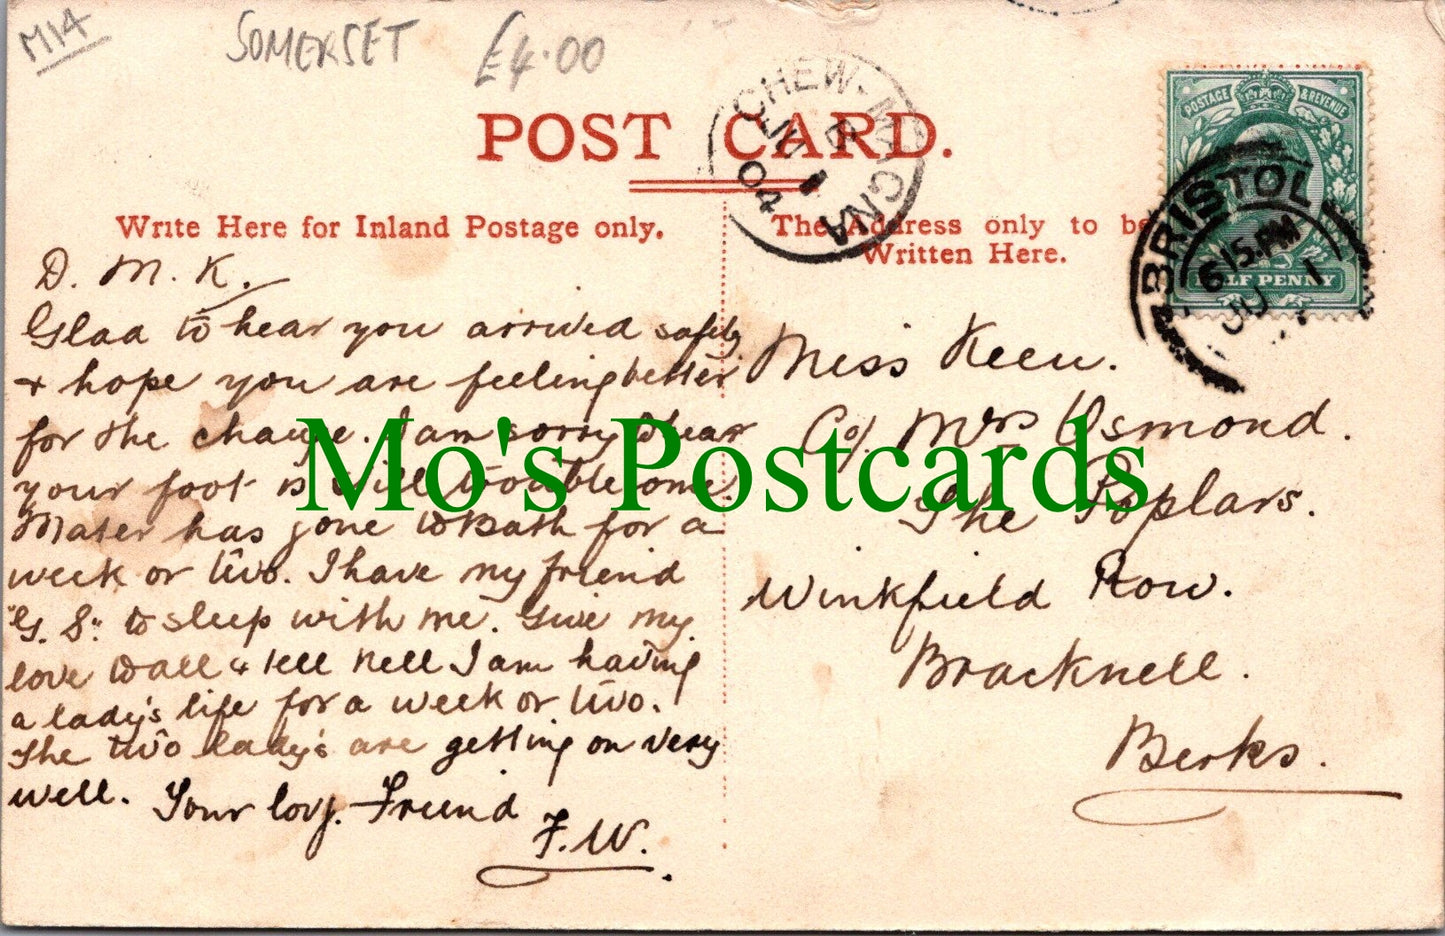 M14
SOMERSET £4.00
POST CARD.
CHEW-MAGNA
B
JU 1
04
POSTAGE & REVENUE
HALF PENNY
BRISTOL
6.15.PM
JU 1
Write Here for Inland Postage only.
The Address only to be
Written Here.
D. M. K.
Glad to hear you arrived safely
+ hope you are feeling better
for the change. I am sorry to hear
your foot is still troublesome.
Mater has gone to Bath for a
week or two. I have my friend
"G. S." to sleep with me. Give my
love to all & tell Nell I am having
a lady's life for a week or two.
The two lady's are getting on very
well. Your lovg. Friend
F. W.
Miss Keen.
C/o. Mrs Osmond.
The Poplars.
Winkfield Row.
Bracknell.
Berks.
Mo's Postcards